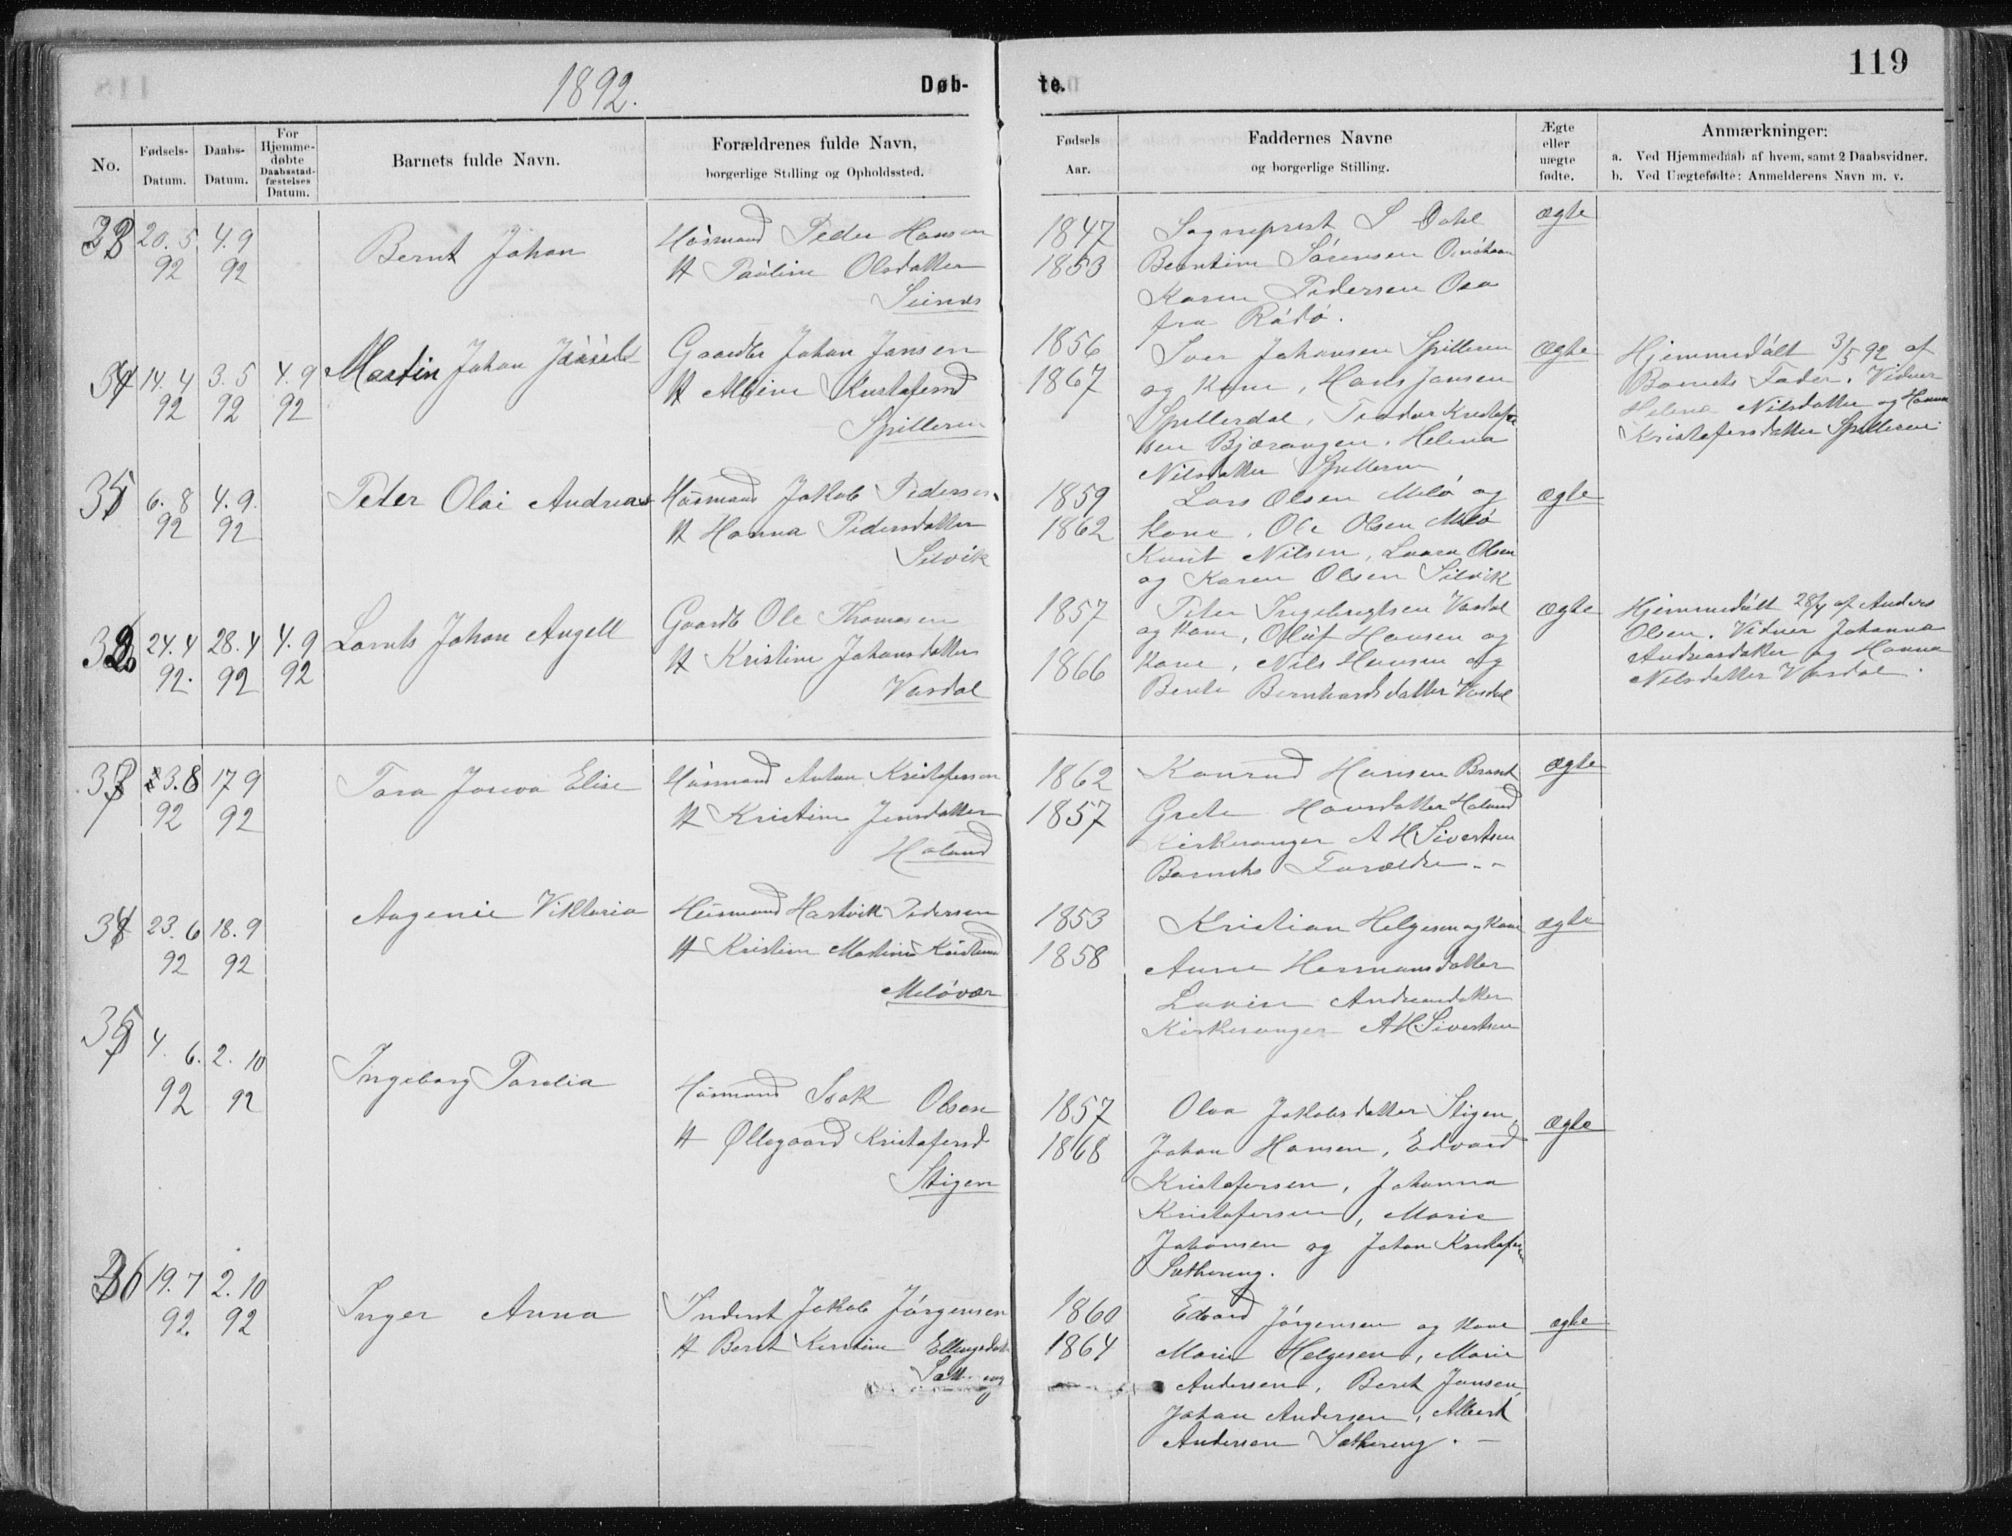 1892.
Døb-
te.
119
No.
Fødsels-
Datum.
Daabs-
Datum.
For
Hjemme-
døbte
Daabsstad-
fæstelses
Datum.
Barnets fulde Navn.
Forældrenes fulde Navn,
borgerlige Stilling og Opholdssted.
Fødsels
Aar.
Faddernes Navne
og borgerlige Stilling.
Ægte
eller
uægte
fødte.
Anmærkninger:
a. Ved Hjemmedaab af hvem, samt 2 Daabsvidner.
b. Ved Uægtefødte: Anmelderens Navn m. v.
20.5 4.9
92 92
Bernt Johan
Húsmand Peder Hansen
H Paúline Olsdatter
1847
1853
Sogneprest S Dahl
Berntine Sørensen
Karen Pedersen Osa
fra Rødø.
ægte
34 14.4 3.5 4.9
92 92 92
Martin Johan
Gaardbr Johan Jansen
H Albine Kristofersd
Spilleren
1856
1867
Iver Johansen Spilleren
og Kone, Hans Jansen
Spillerdal, Peder Kristofer
sen Bjærangen, Helena
Nilsdatter Spilleren
ægte
Hjemmedøbt 3/5 92 af
Barnets Fader. Vidner
Helena Nilsdatter og Hanna
Kristofersdatter Spilleren.
35 6.8 4.9.
92 92
Peder Olai Andreas
Húsmand Jakob Pedersen
H Hanna Pedersdatter
Selvik
1859
1862
Lars Olsen Melø og
Kone, Ole Olsen Melø
Knut Nilsen, Laura Olsen
og Karen Olsen Selvik
ægte
24.4 28.4 4.9
92. 92 92
Lornts Johan Angell
Gaardb Ole Thomasen
H Kristine Johansdatter
Vasdal
1857
1866
Peter Ingebregtsen Vasdal
og Kone, Olúf Hansen og
Kone, Nils Hansen og
Berit Bernhardsdatter Vasdal
ægte
Hjemmedøbt 28/4 af Anders
Olsen. Vidner Johanna
Andreasdatter og Hanna
Nilsdatter Vasdal.
37 23.8 17 9
92 92
Tora Elise
Húsmand Anton Kristofersen
H Kristine Jensdatter
Haland
1862
1857
Konrad Hansen
Grete Hansdatter Haland
Kirkesanger A H Sivertsen
Barnets Forældre
ægte
34 23.6 18.9
92 92
Angenie Viktoria
Húsmand Hartvik Pedersen
H Kristine Martines
Meløvær
1853
1858
Kristian Helgesen og Kone
Anne Hermansdatter
Andreasdatter
Kirkesanger A H Sivertsen
ægte
35 4. 6. 2. 10
92 92
Ingeborg Paralia
Húsmand Isak Olsen
H Øllegaard Kristofersd
Stigen
1857
1868
Olea Jakobsdatter Stigen,
Johan Hansen, Edvard
Kristofersen, Johanna
Kristofersen, Marie
Johansen og Johan Kristofer
Sæthereng.
ægte
36 19.7 2.10
92. 92
Inger Anna
Inderst Jakob Jørgensen
H Beret Kirstine Ellingsdat
1860
1864
Edvard Jørgensen og Kone
Marie Helgesen, Marie
Andersen, Beret Jansen,
Johan Andersen, Albert
Andersen Sæthereng.
ægte